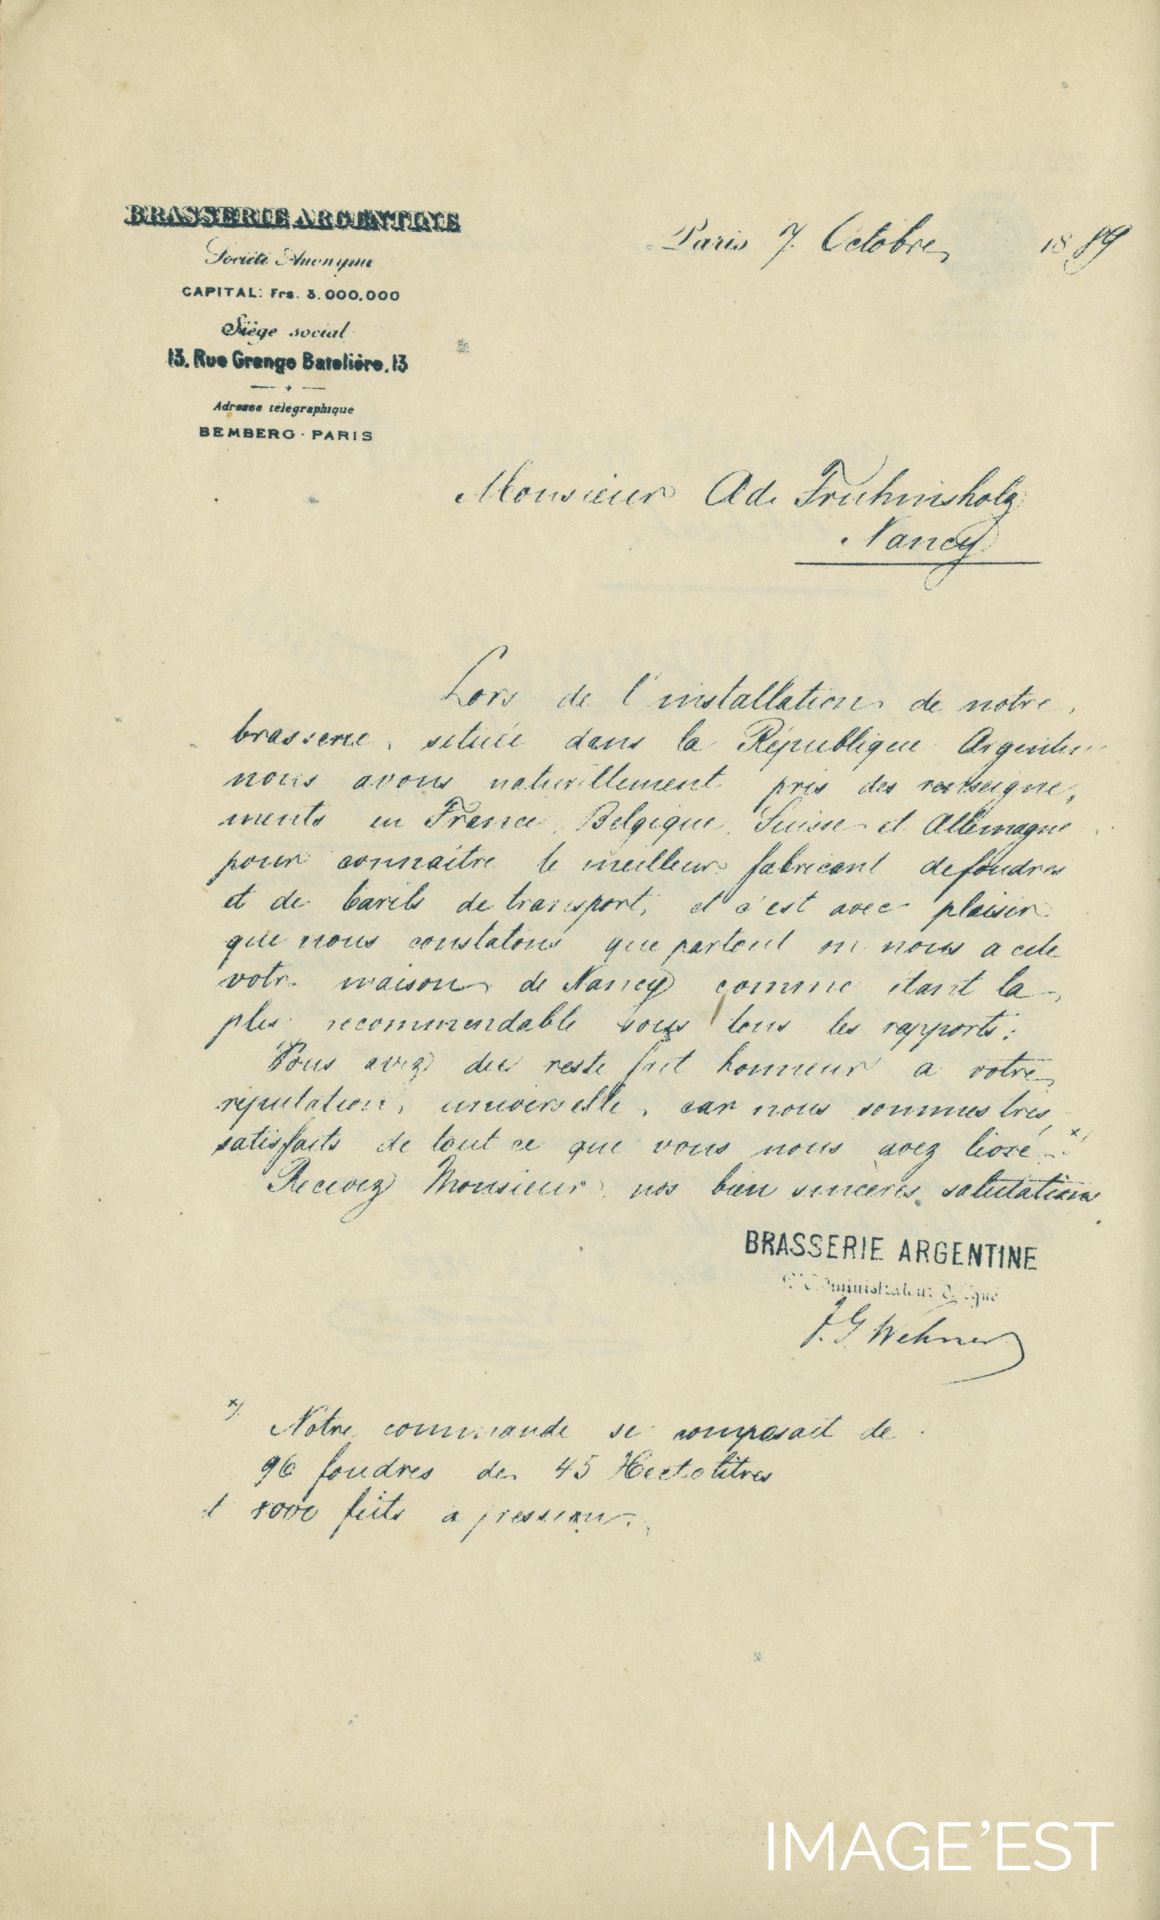 BRASSERIE ARGENTINE
Société Anonyme
CAPITAL: Frs. 3.000.000
Siège social
13, Rue Grange Batelière, 13
Adresse télégraphique
BEMBERG · PARIS
Paris 7. Octobre 1889
Monsieur Ad. Fruhinsholz
Nancy
Lors de l'installation de notre
brasserie, située dans la République Argentine
nous avons naturellement pris des renseigne,
ments en France, Belgique, Suisse et Allemagne
pour connaitre le meilleur fabricant de foudres
et de barils de transport, et c'est avec plaisir
que nous constatons que partout on nous a cité
votre maison de Nancy comme étant la
plus recommendable sous tous les rapports.
Vous avez du reste fait honneur a votre
réputation, universelle, car nous sommes très
satisfaits de tout ce que vous nous avez livré. *)
Recevez Monsieur, nos bien sincères salutations
BRASSERIE ARGENTINE
L'Administrateur Délégué
J. G. Wehner
*) Notre commande se composait de
96 foudres de 45 Hectolitres
et 8000 fûts a pression.
IMAGE'EST